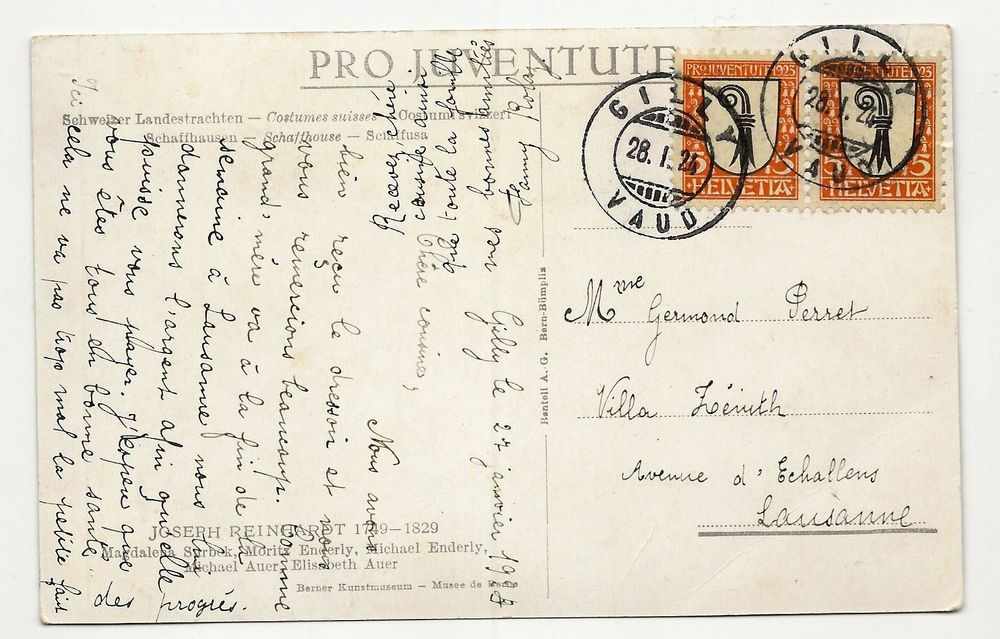 PRO JUVENTUTE
Schweizer Landestrachten – Costumes suisses – Costumi svizzeri
Schaffhausen – Schaffhouse – Scaffusa
PRO JUVENTUTE 1923
15 15
HELVETIA
PRO JUVENTUTE 1923
15 15
HELVETIA
GILLY
28.I.24
VAUD
GILLY
28.I.24
VAUD
Mme Germond Perret
Villa Zénith
Avenue d'Echallens
Lausanne
Benteli A. G. Bern-Bümpliz
Gilly le 27 janvier 1924
Chère cousine,
Nous avons
bien reçu le dresson et nous
vous remercions beaucoup. Comme
grand'mère va à la fin de la
semaine à Lausanne nous lui
donnerons l'argent afin qu'elle
puisse vous payer. J'espère que
vous êtes tous en bonne santé.
Ici cela ne va pas trop mal la petite fait
des progrès.
Recevez chère
cousine ainsi
que toute la famille
nos bonnes amitiés
JOSEPH REINHARDT 1749–1829
Magdalena Sürbek, Moritz Enderly, Michael Enderly,
Michael Auer, Elisabeth Auer
Berner Kunstmuseum – Musée de Berne